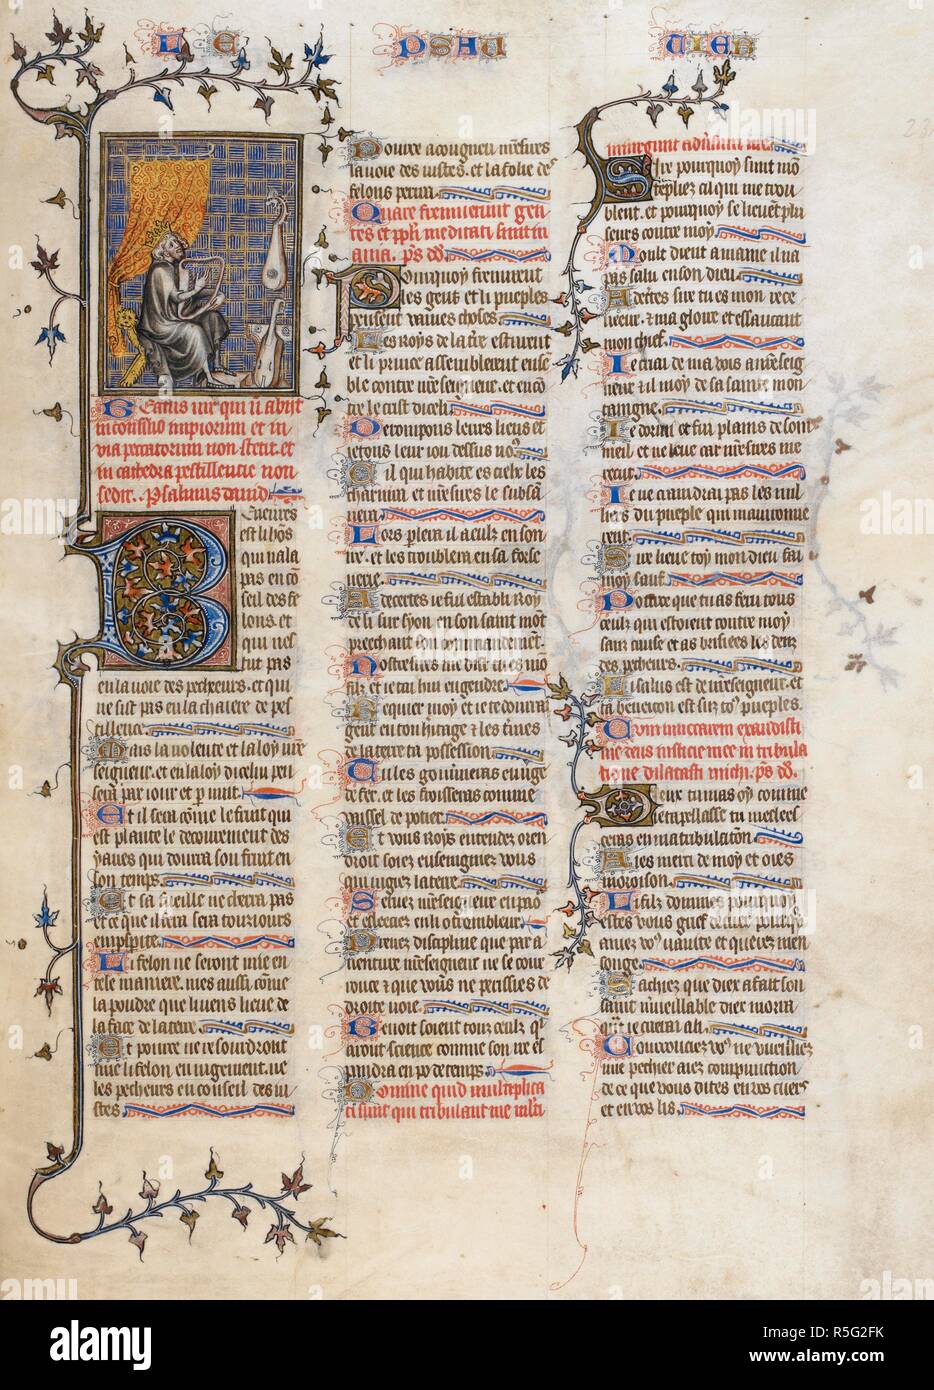 LE PSAU TIER
Beatus vir qui n̄ abijt
in consilio impiorum et in
via peccatorum non stetit. et
in cathedra pestillencie non
sedit.. Psalmus david
Beneures
est li hōs
qui n ala
pas en cō
seil des fe
lons. et
qui nes
tut pas
en la voie des pecheurs. et qui
ne sist pas en la chaiere de pes
tillence.
Mais la volente et la loy nr̄e
seigneur. et en la loy dicelui pen
sera par iour et p nuit.
Et il sera cōme le fruit qui
est plante le decourement des
yaues qui donra son fruit en
son temps.
Et sa fueille ne cherra pas
et ce que il fera sera touriours
en ꝓsperite.
Li felon ne seront mie en
tele maniere. mes aussi cōme
la poudre que li uens lieue de
la face de la terre.
Et pource ne resourdront
mie li felon en iugement. ne
les pecheurs en conseil des iu
stes.
Pource a cougneu nr̄e sires
la voie des iustes. et la folie des
felons perira.
Quare fremuerunt gen
tes et ppl̄i meditati sunt in
ania. p̄s dd̄.
Pourquoy fremirent
les gens et li pueples
penserent vaines choses.
Les roys de la t̄re estiurent
et li prince assemblerent ense
ble contre nr̄e seigneur. et encō
tre le crist di celi.
Derompons leurs liens et
ietons leur iou dessus noꝰ.
Cil qui habite es ciels les
charnira et nr̄e sires le subsan
nera.
Lors parlera il a eulz en son
ire. et les troublera en sa forse
nerie.
Adecertes ie sui establi roy
de li sur syon en son saint mōt
preechant son commandemēt.
Nostre sires me dist tu es mō
filz et ie tai hui engendre.
Requier moy et ie te donrai
gent en ton heritage et les t̄mes
de la terre ta possession.
Tu les gouuerneras en uge
de fer. et les froisseras comme
vaissel de potier.
Et vous roys entendez oren
droit soiez enseigniez vous
qui iugiez la terre.
Seruez nr̄e seigneur en paō
et esleeciez en li o tremblour.
Prenez discipline que par a
uenture nr̄e seigneur ne se cour
rouce et que vous ne perissies de
droite voie.
Benoit soient touz ceulz qͥ
auront science comme son ire es
prindra en po de temps.
Domine quid multiplica
ti sunt qui tribulant me multi
insurgunt aduersum me.
Sire pourquoy sunt mō
tepliez cil qui me trou
blent. et pourquoy se lieuent plu
seurs contre moy.
Moult dient a mame il na
pas salu en son dieu.
Adectes sire tu es mon rece
lieeur. et ma gloire et essaucant
mon chief.
Ie criai de ma vois a nr̄e seig
neur et il moy de sa sainte mon
taingne.
Ie dormi et fui plains de som
meil et ne leue car nr̄e sires me
recut.
Ie ne craindrai pas les mil
liers du pueple qui mauironne
rent.
Sire lieue toy mon dieu fai
moy sauf.
Pource que tu as feru tous
ceulz qui estoient contre moy
sanz cause et as brisiees les denz
des pecheurs.
Li salus est de nr̄e seigneur. et
ta beneicon est suz toꝰ pueples.
Cum inuocarem exaudisti
me deus iusticie mee in tribula
tione dilatasti michi. p̄s dd̄.
Dieux tu mas oy comme
ie tapellasse tu me esles
ceras en ma tribulaciōn.
Aies merci de moy et oies
moroison.
Filz dommes pourquoy
estes vous grief de cuer pourqͦy
amez voꝰ vanite et querez men
songe.
Sachiez que diex a fait son
saint m̄ueillable diex morra
qn̄t ie crierai a li.
Courrouciez voꝰ ne vueilliez
mie pechier aiez compunction
de ce que vous dites en voz cuers
et en voz lis.
alamy
alamy
Image ID: R5G2FK
www.alamy.com